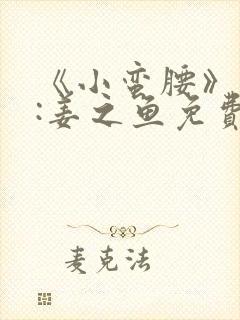 《小蛮腰》
:姜之鱼免費
麦克法